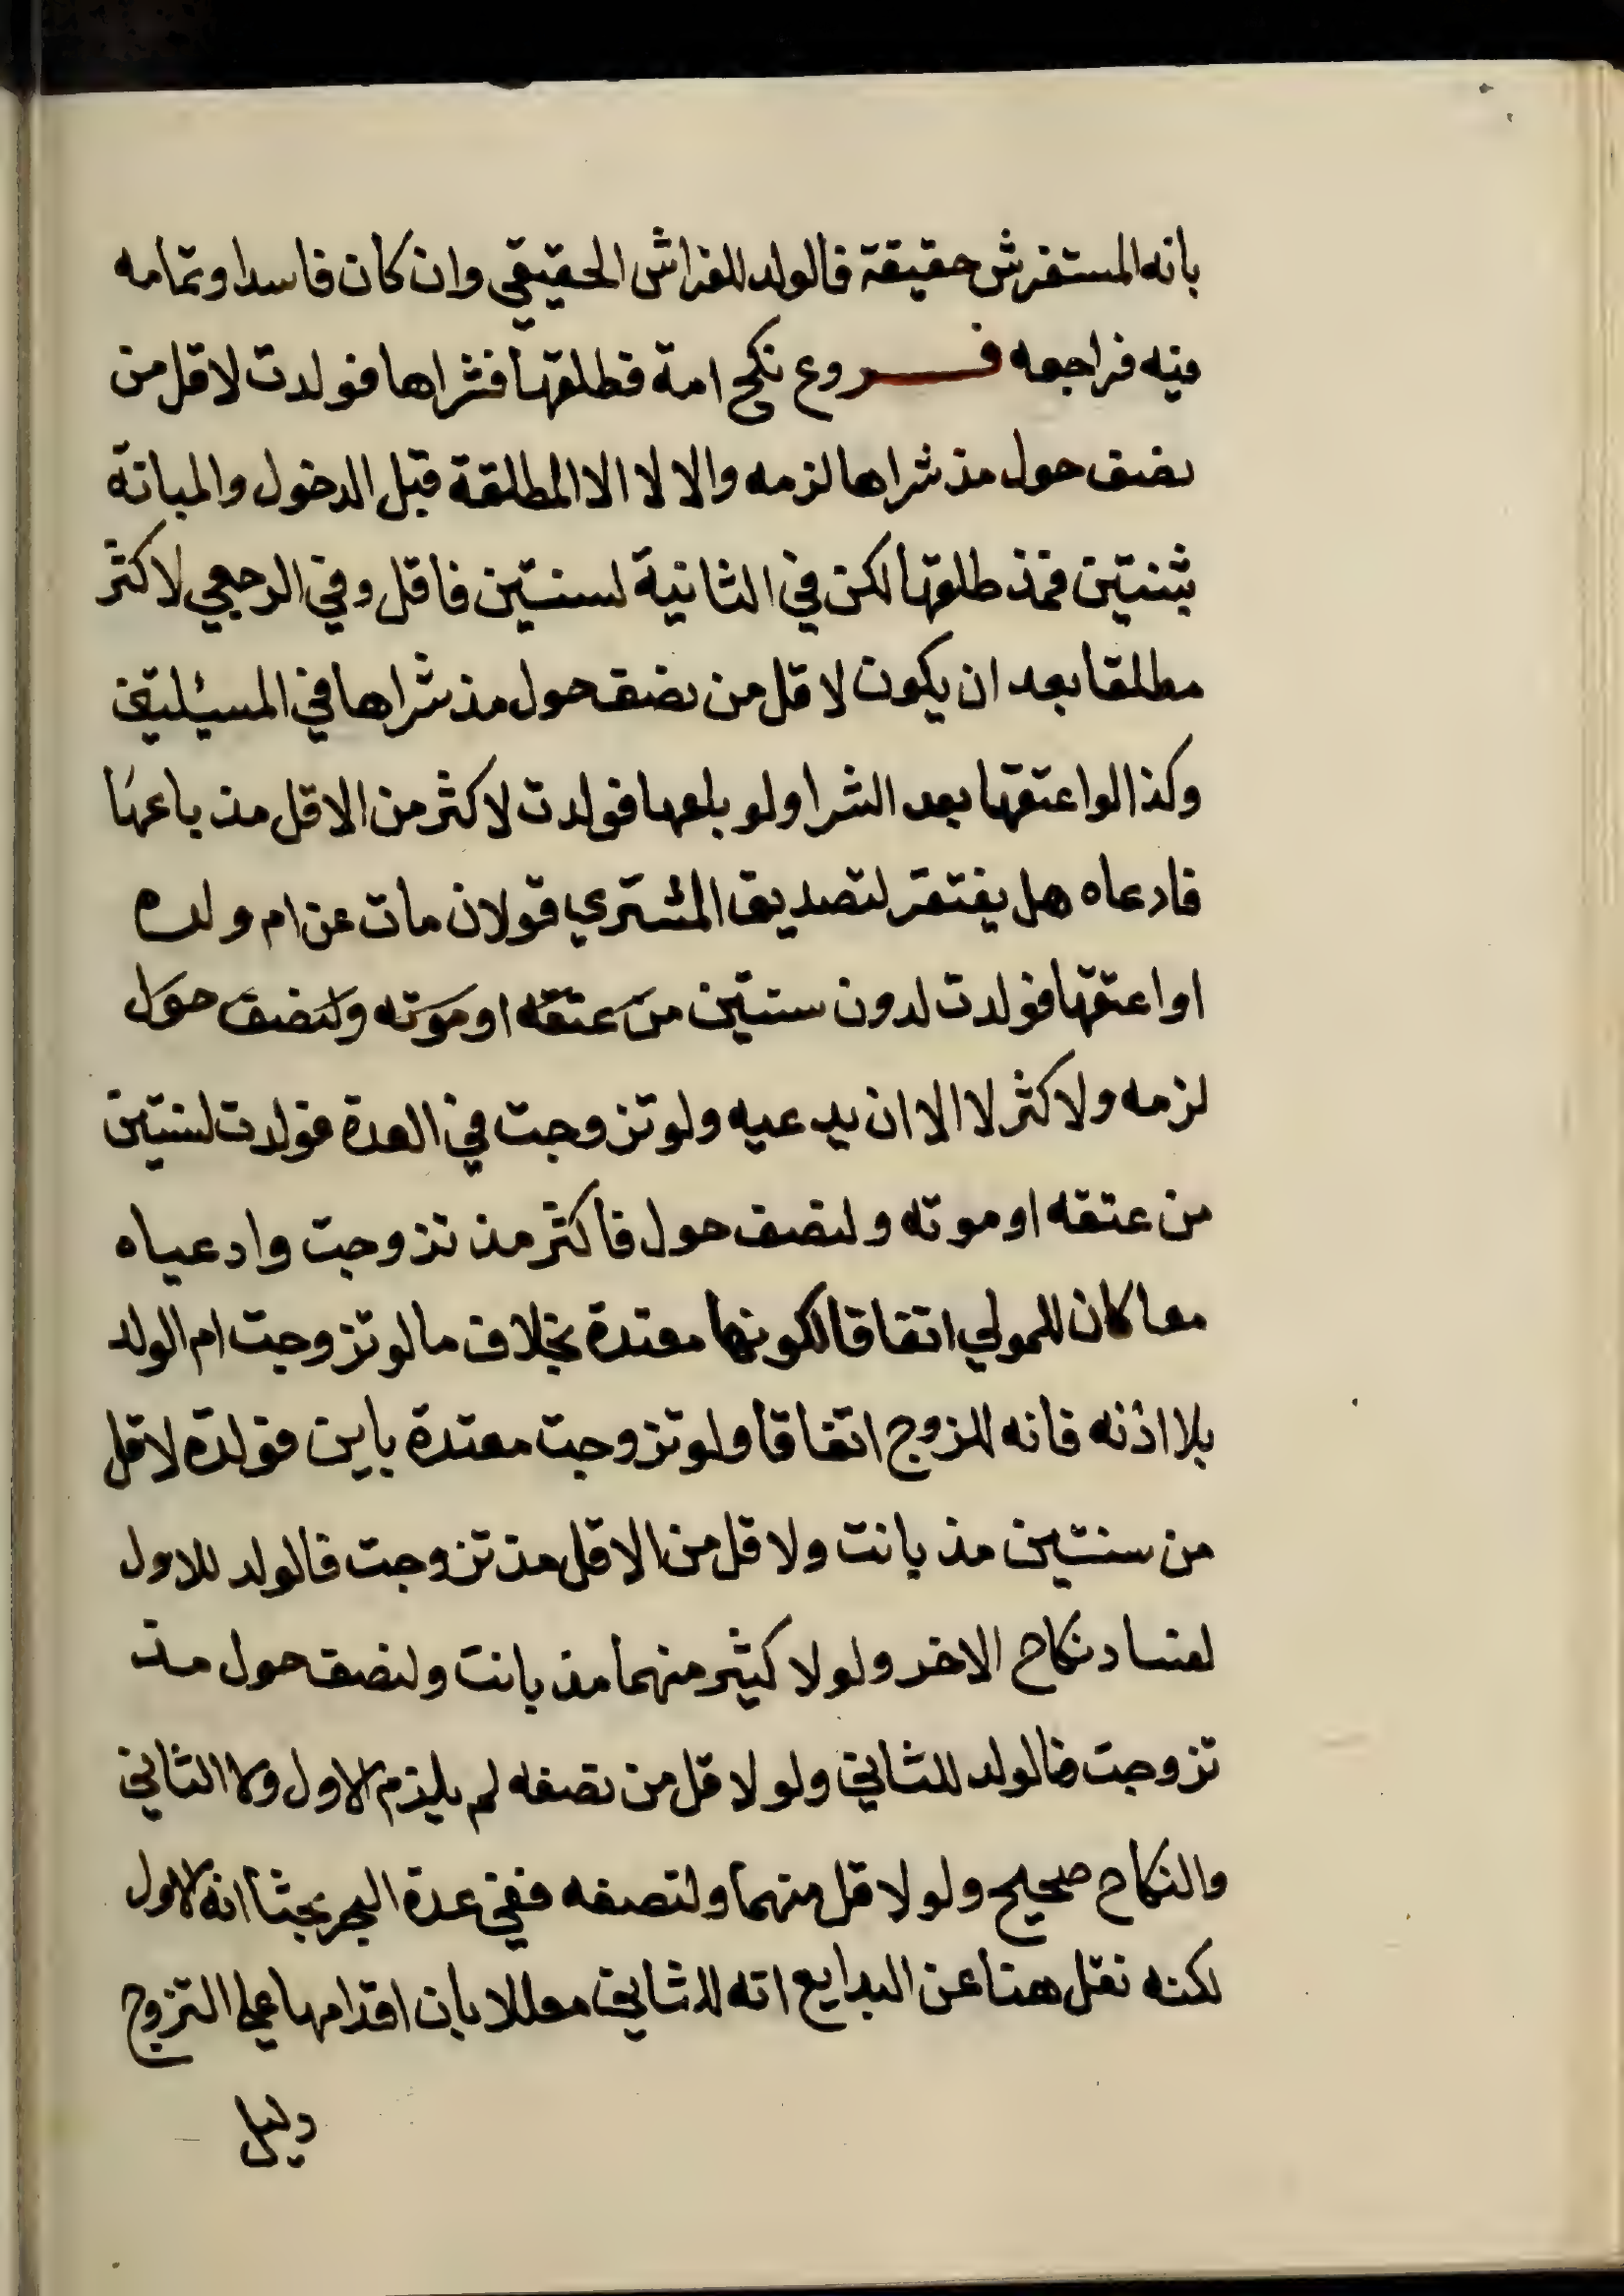 بانه المستفرش حقيقة فالولد للفراش الحقيقي وان كان فاسدا وتمامه
فيه فراجعه فروع نكح امة فطلقها فشراها فولدت لاقل من
نصف حول مذ شراها لزمه والا لا الا المطلقة قبل الدخول والمبانة
بثنتين فمذ طلقها لكن في الثانية لسنتين فاقل وفي الرجعي لاكثر
مطلقا بعد ان يكون لاقل من نصف حول مذ شراها في المسيئلتين
وكذا لو اعتقها بعد الشرا ولو باعها فولدت لاكثر من الاقل مذ باعها
فادعاه هل يفتقر لتصديق المشتري قولان مات عن ام ولده
او اعتقها فولدت لدون سنتين من عتقه او موته ولنصف حول
لزمه ولاكثر لا الا ان يدعيه ولو تزوجت في العدة فولدت لسنتين
من عتقه او موته ولنصف حول فاكثر مذ تزوجت وادعياه
معا كان للمولي اتفاقا لكونها معتدة بخلاف ما لو تزوجت ام الولد
بلا اذنه فانه للزوج اتفاقا ولو تزوجت معتدة باين فولدة لاقل
من سنتين مذ بانت ولاقل من الاقل مذ تزوجت فالولد للاول
لفساد نكاح الاخر ولو لاكثير منهما مذ بانت ولنصف حول مذ
تزوجت فالولد للثاني ولو لاقل من نصفه لم يلزم الاول ولا الثاني
والنكاح صحيح ولو لاقل منهما ولنصفه ففي عدة البحر بحثا انه للاول
لكنه نقل هنا عن البدايع انه للثاني معللا بان اقدامها علي التزوج
دليل